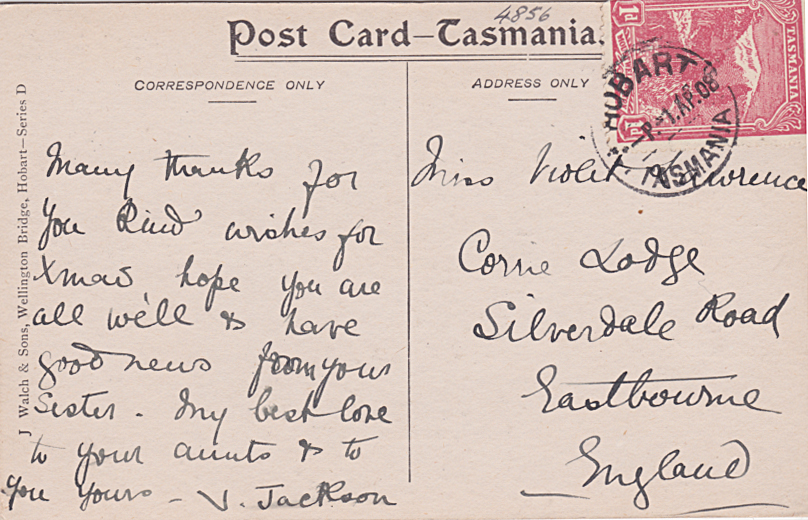 4856
Post Card—Tasmania.
CORRESPONDENCE ONLY
ADDRESS ONLY
1d TASMANIA
1d
HOBART
P.-1.AP.08
TASMANIA
J Walch & Sons, Wellington Bridge, Hobart—Series D
Many thanks for
you kind wishes for
Xmas, hope you are
all well & have
good news from your
Sister - My best love
to your aunts & to
you yours - V. Jackson
Miss Violet Lawrence
Corrie Lodge
Silverdale Road
Eastbourne
England